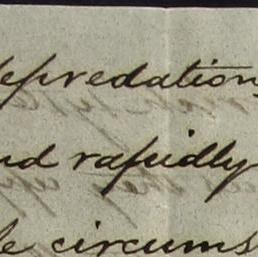 depredations
and rapidly
circums